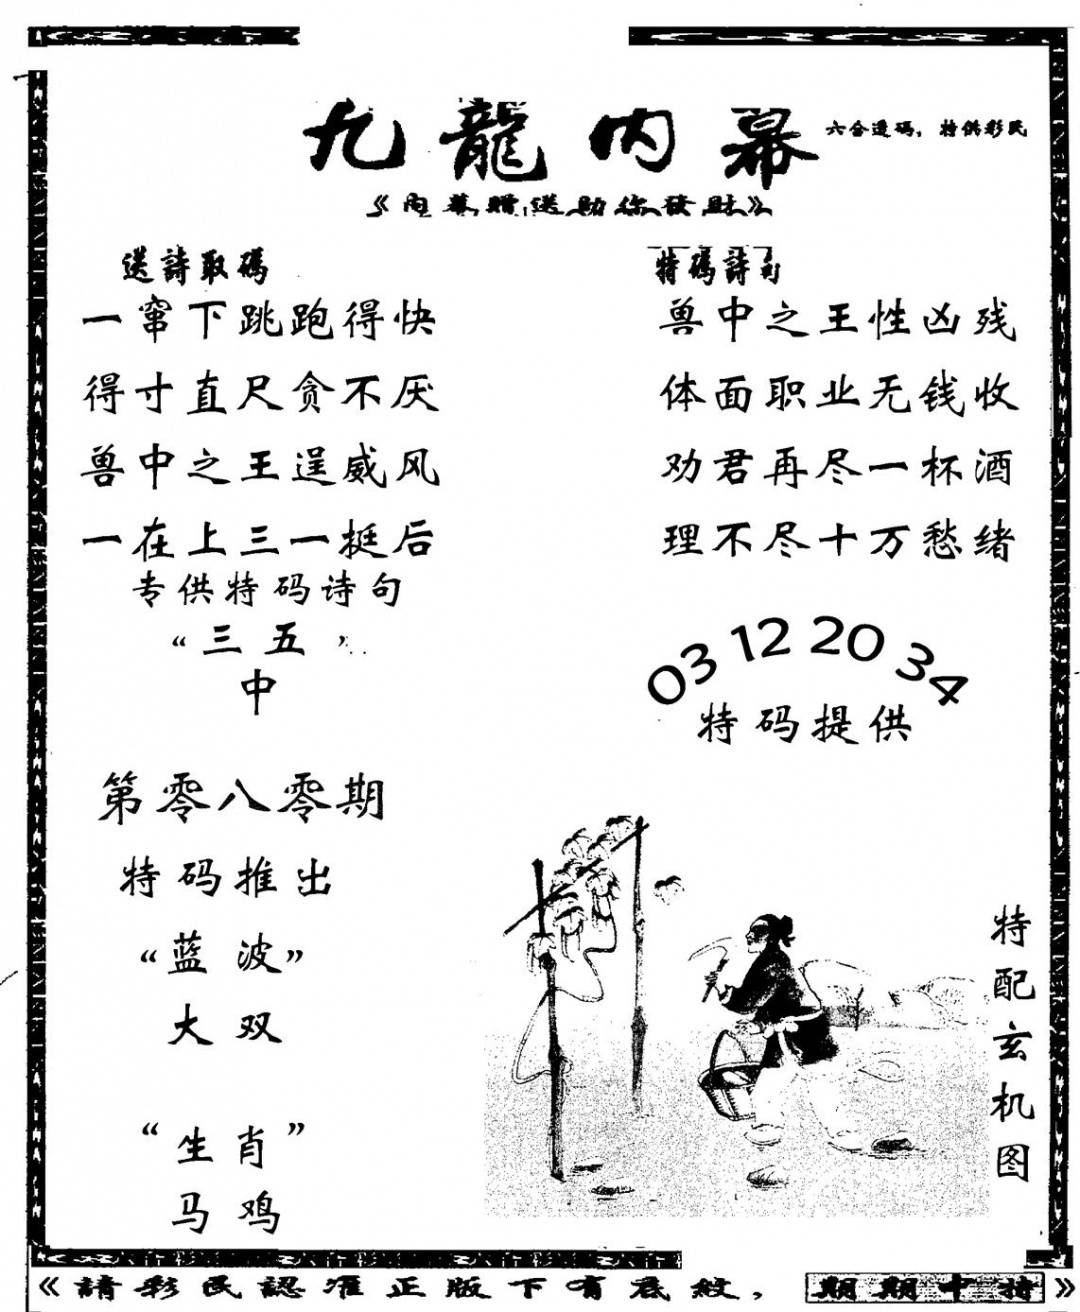 九龍内幕
六合透碼，特供彩民
《内幕贈送助你發財》
送詩取碼
一窜下跳跑得快
得寸直尺贪不厌
兽中之王逞威风
一在上三一挺后
专供特码诗句
“三五”
中
第零八零期
特码推出
“蓝波”
大双
“生肖”
马鸡
特碼詩句
兽中之王性凶残
体面职业无钱收
劝君再尽一杯酒
理不尽十万愁绪
03 12 20 34
特码提供
特配玄机图
《請彩民認准正版下有底紋，期期中特》